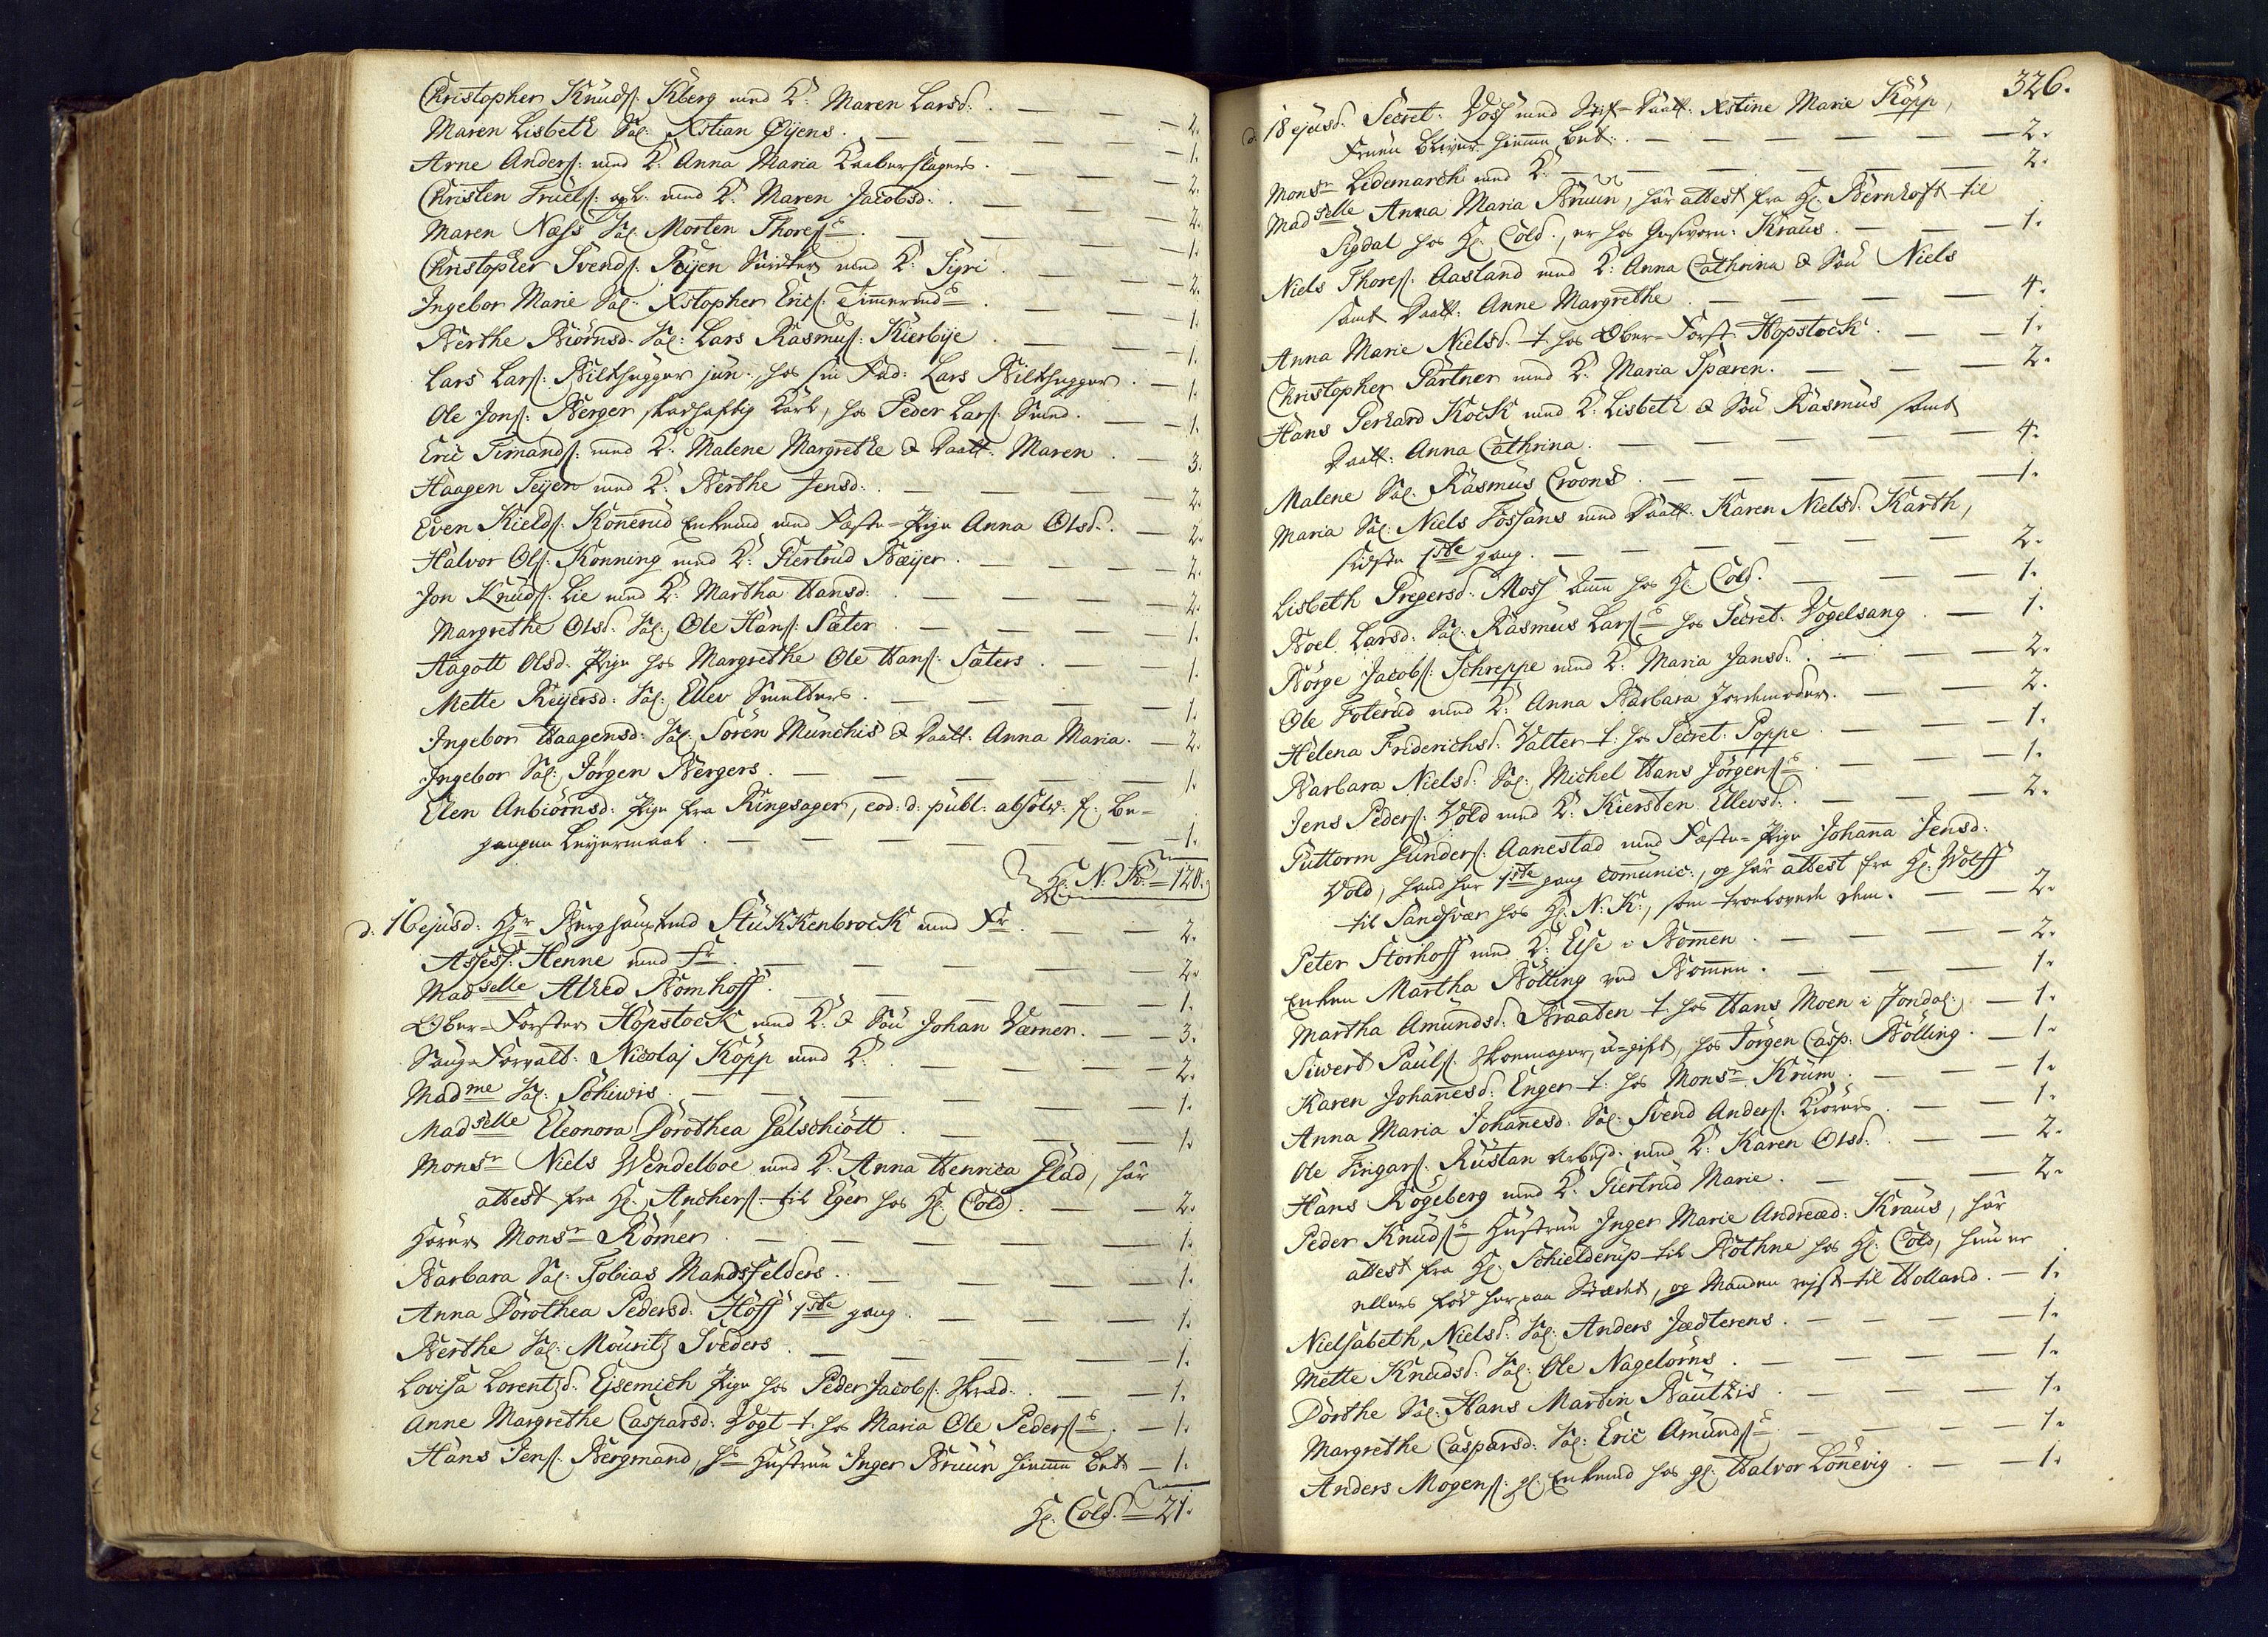 Christopher Knuds: Kberg med K: Maren Larsd: . — — — 2.
Maren Lisbeth Sal: Xstian Øijens . — — — — 1.
Arne Anders: med K: Anna Maria Kaaberslagers . — — 2.
Christen Truels: med K: Maren Jacobsd: . — — — 2.
Maren Næss Sal: Morten Thores . — — — — 1.
Christopher Svends: Røijen Snidker med K: Sigri . — — 2.
Ingebor Marie Sal: Xstopher Erics: Timmermds . — — 1.
Berthe Biörnsd: Sal: Lars Rasmus: Kierbije . — — 1.
Lars Lars: Bilthugger jun:, hos sin Fad: Lars Bilthugger . — 1.
Ole Jons: Berger skadhaftig Karl, hos Peder Lars: Smed . — 1.
Eric Simands: med K: Malene Margrethe & Daatt: Maren . — 3.
Haagen Teijen med K: Berthe Jensd: . — — — — 2.
Even Kields: Konerud Enkemd med Fæste-Pige Anna Olsd: . — 2.
Halvor Ols: Konning med K: Giertrud Bæijer . — — — 2.
Jon Knuds: Lie med K: Martha Hansd: . — — — 2.
Margrethe Olsd: Sal: Ole Hans: Sæter . — — — — 1.
Aagott Olsd: Pige hos Margrethe Ole Hans: Sæters . — — 1.
Mette Reijersd: Sal: Ellev Smelters . — — — — 1.
Ingebor Haagensd: Sal: Sören Münchis & Daatt: Anna Maria . — 2.
Ingebor Sal: Jörgen Bergers . — — — — — 1.
Elen Anbiörnsd: Pige fra Ringsager, eod: d: publ: absolv: f: be-
gangen Leyermaal . — — — — — 1.
Hr: N: K: = 120.
d: 16 ejusd: Hr Berghauptmd Stukkenbrock med Fr . — — 2.
Assess: Henne med Fr . — — — — 2.
Madselle Alhed Bomhoff . — — — — 1.
Ober-Forster Hopstock med K: & Søn Johan Værner . — 3.
Saug-Forvalt: Nicolaj Köpp med K: . — — — 2.
Madme Sal: Schiwis . — — — — — 1.
Madselle Eleonora Dorothea Palschiött . — — — 1.
Monsr Niels Wendelboe med K: Anna Henrica Glad, har
attest fra Hr: Anchers: til Eger hos Hr: Cold . — — 2.
Hörer Monsr Römer . — — — — — 1.
Barbara Sal: Tobias Mandsfelders . — — — 1.
Anna Dorothea Pedersd: Hoff 1ste gang . — — — 1.
Berthe Sal: Mouritz Sveders . — — — — 1.
Lovisa Lorentzd: Ejsemich Pige hos Peder Jacobs: Skræd: . — 1.
Anne Margrethe Casparsd: Vogt t: hos Maria Ole Peders . — 1.
Hans Jens: Bergmand, hs Hustrue Inger Bruun hiemme bet: — 1.
Hr: Cold. = 21.
326.
d: 18 ejusd: Secret: Voss med Stif-Daatt: Xstine Marie Köpp,
Fruen bliver hiemme bet: . — — — — 2.
Monsr Lidemarch med K: — — — — — 2.
Madselle Anna Maria Bruun, har attest fra Hr: Bernhoft til
Sigdal hos Hr: Cold., er hos Gesvorn: Kraus . — — 1.
Niels Thores: Aasland med K: Anna Cathrina & Søn Niels
samt Daatt: Anne Margrethe . — — — — 4.
Anna Marie Nielsd: t: hos Ober-Forst: Hopstock . — — 1.
Christopher Gärtner med K: Maria Spæren . — — 2.
Hans Gerhard Kock med K: Lisbeth & Søn Rasmus samt
Daatt: Anna Cathrina . — — — — — 4.
Malene Sal: Rasmus Croons . — — — — — 1.
Maria Sal: Niels Fossans med Daatt: Karen Nielsd: Karth,
sidste 1ste gang . — — — — — 2.
Lisbeth Gregersd: Moss hos Hr: Cold . — — 1.
Boel Larsd: Sal: Rasmus Lars hos Secret: Vogelsang . — 1.
Börge Jacobs: Schreppe med K: Maria Jansd: . — — 2.
Ole Foterud med K: Anna Barbara Jordemoder . — — 2.
Helena Friderichsd: Valter t: hos Secret: Poppe . — — 1.
Barbara Nielsd: Sal: Michel Hans Jörgens . — — 1.
Jens Peders: Vold med K: Kiersten Ellevsd: . — — 2.
Guttorm Gunders: Aanestad med Fæste-Pige Johanna Jensd:
Vold, hand har 1ste gang communic:, og har attest fra Hr: Wolff
til Sandsvær hos Hr: N: K:, som trolovede dem . — — 2.
Peter Storhoff med K: Else i Bommen . — — — 2.
Enken Martha Bölling ved Bommen . — — — 1.
Martha Amundsd: Braaten t: hos Hans Moen i Jondal: . — 1.
Siwert Pauls: Skoemager, u-gift, hos Jörgen Casp: Bölling . — 1.
Karen Johannesd: Enger t: hos Monsr Krum . — — 1.
Anna Maria Johannesd: Sal: Svend Anders: Kiörers . — — 1.
Ole Fingars: Rustan Arbejd: med K: Karen Olsd: . — — 2.
Hans Rögeberg med K: Giertrud Marie . — — — 2.
Peder Knuds Hustrue Inger Marie Andreæd: Kraus, har
attest fra Hr: Schielderup til Bothne hos Hr: Cold, hun er
ellers fød her paa Stædet, og Manden reist til Holland . — 1.
Nielsabeth Nielsd: Sal: Anders Jædterens . — — — 1.
Mette Knudsd: Sal: Ole Nagelörns . — — — 1.
Dorthe Sal: Hans Martin Bautzis . — — — 1.
Margrethe Casparsd: Sal: Eric Amunds . — — — 1.
Anders Mogens: gl: Enkemd hos gl: Halvor Lönevig . — — 1.